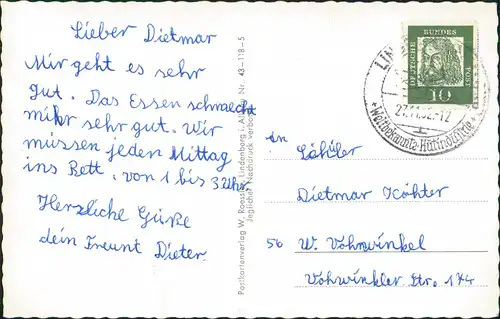 Lieber Dietmar
Mir geht es sehr
gut. Das Essen schmeckt
mihr sehr gut. Wir
müssen jeden Mittag
ins Bett, von 1 bis 3 Uhr.
Herzliche Grüße
dein Freunt Dieter.
Postkartenverlag W. Roessler, Lindenberg i. Allgäu Nr. 43-118-5
Jeglicher Nachdruck verboten
DEUTSCHE
BUNDES
POST
10
LIN
27.11.62.-12
Weltbekannte Hutindustrie
An
Schüler
Dietmar Köhter
56 W. Vohwinkel
Vohwinkler Str. 174